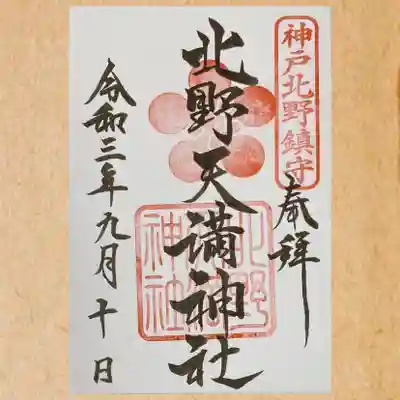 神戸北野鎮守
奉拝
北野天満神社
北野天満神社
令和三年九月十日